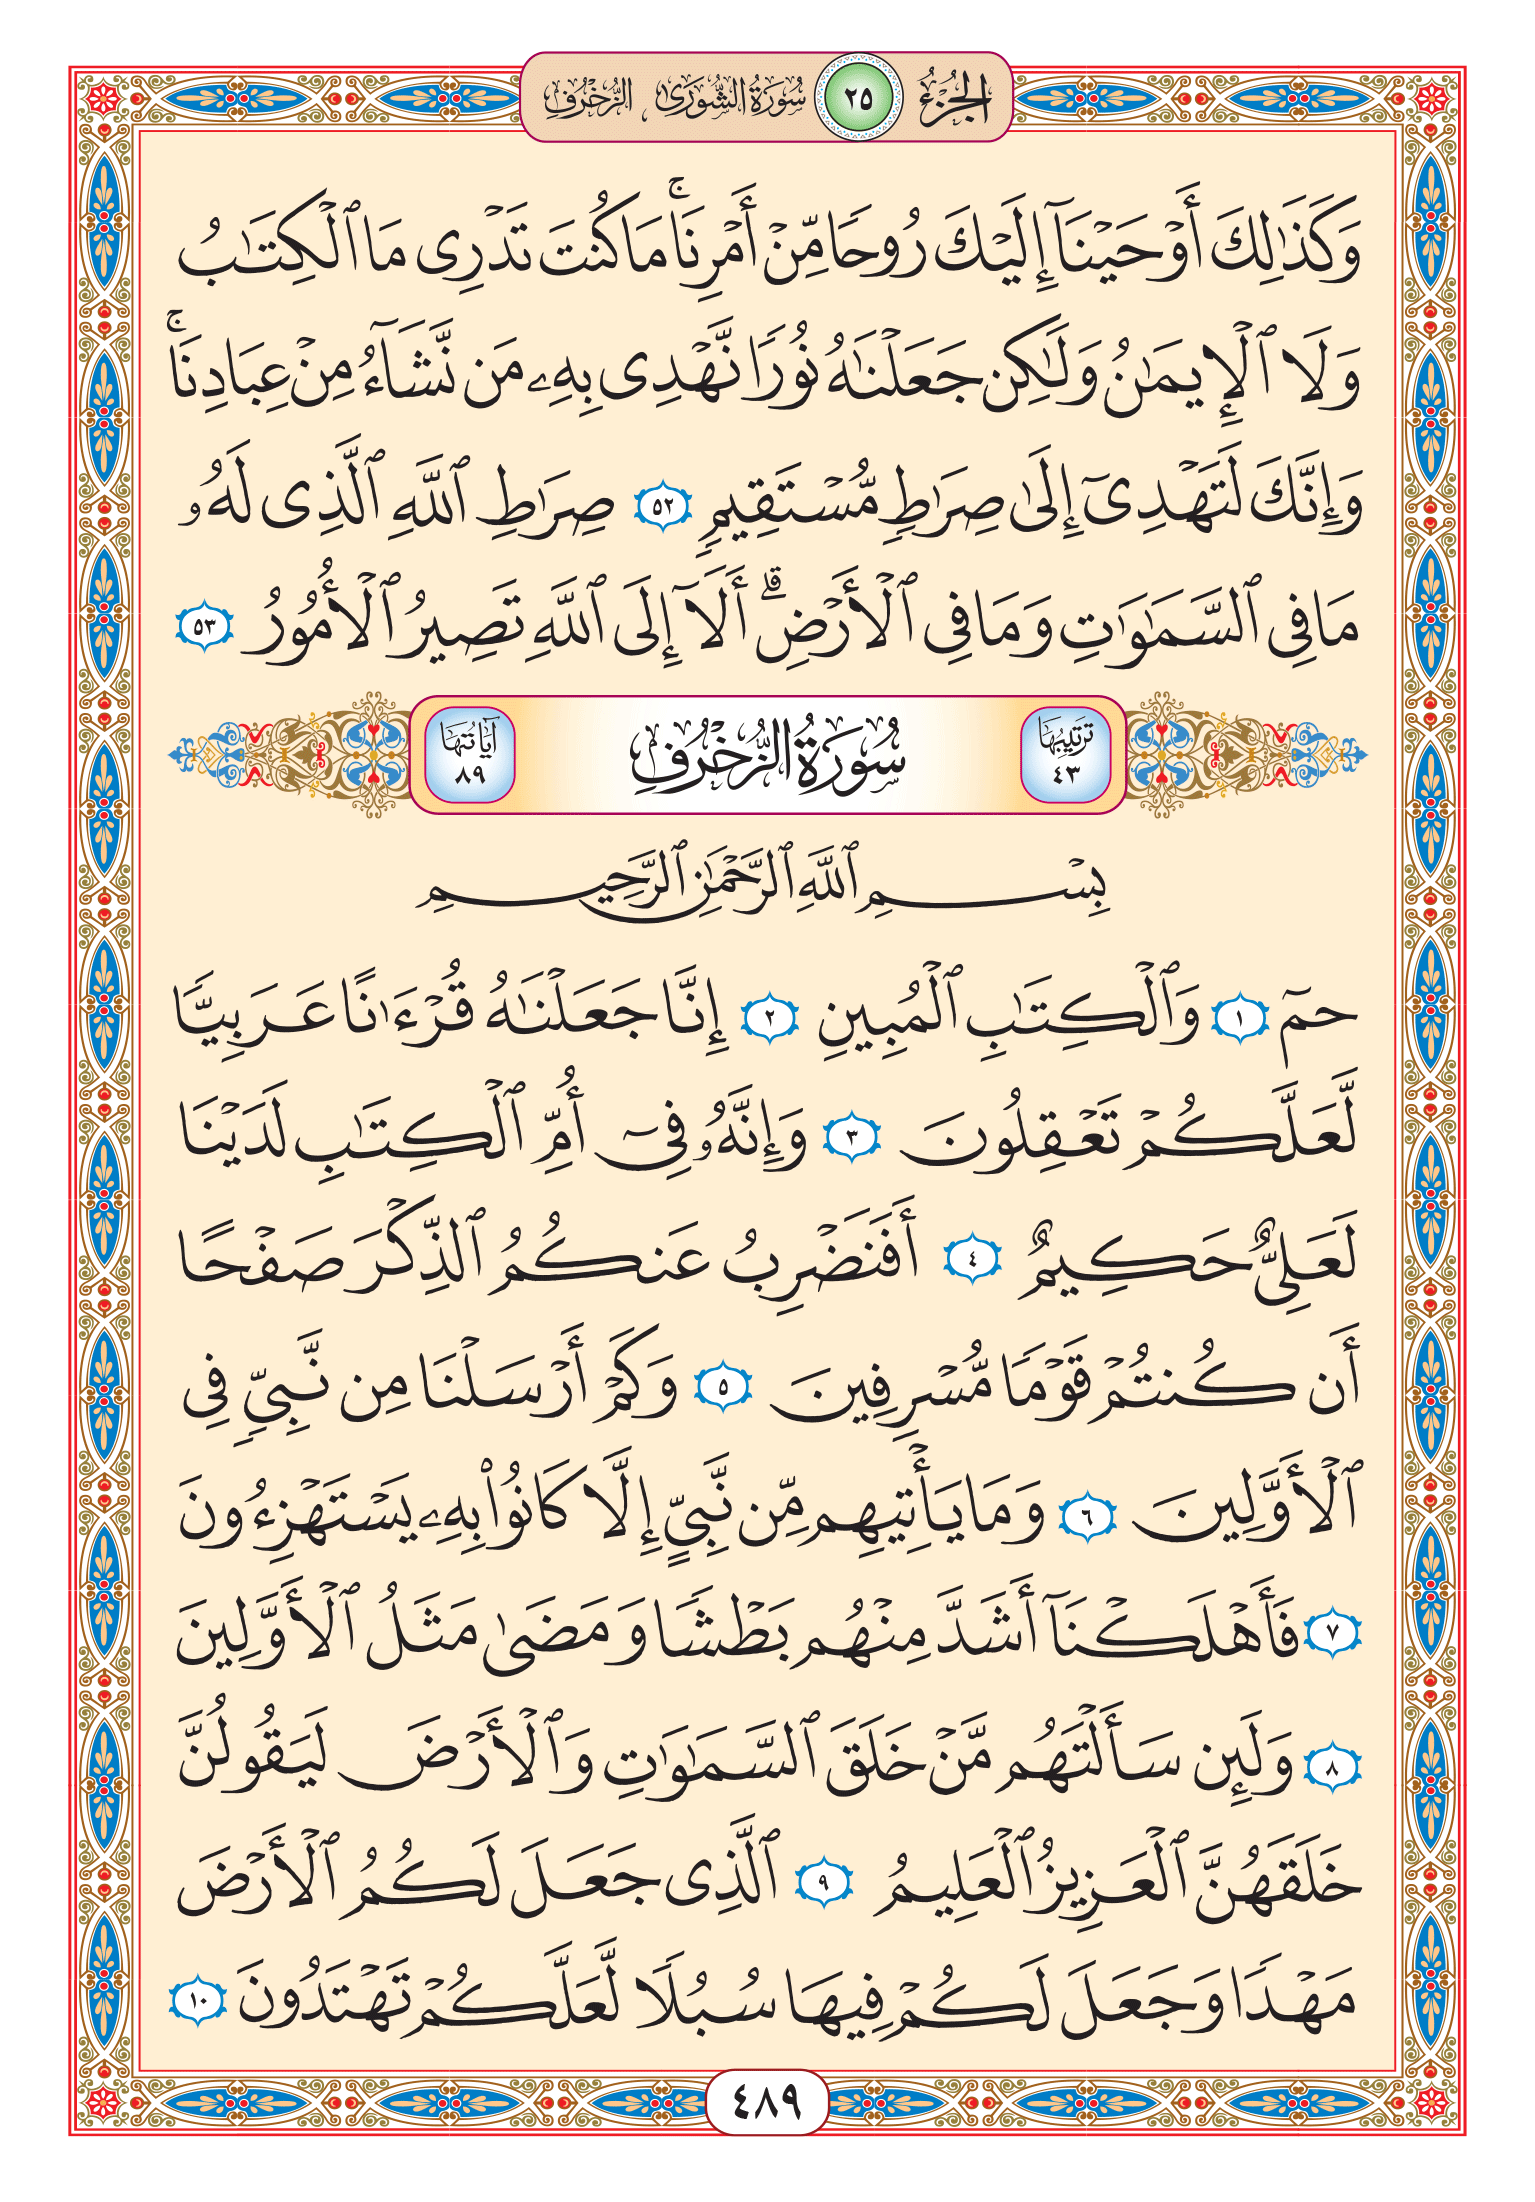 الجزء ٢٥ سورة الشورى الزخرف
وَكَذَٰلِكَ أَوْحَيْنَآ إِلَيْكَ رُوحًا مِّنْ أَمْرِنَا ۚ مَا كُنتَ تَدْرِى مَا ٱلْكِتَٰبُ
وَلَا ٱلْإِيمَٰنُ وَلَٰكِن جَعَلْنَٰهُ نُورًا نَّهْدِى بِهِۦ مَن نَّشَآءُ مِنْ عِبَادِنَا ۚ
وَإِنَّكَ لَتَهْدِىٓ إِلَىٰ صِرَٰطٍ مُّسْتَقِيمٍ ٥٢ صِرَٰطِ ٱللَّهِ ٱلَّذِى لَهُۥ
مَا فِى ٱلسَّمَٰوَٰتِ وَمَا فِى ٱلْأَرْضِ ۗ أَلَآ إِلَى ٱللَّهِ تَصِيرُ ٱلْأُمُورُ ٥٣
ترتيبها ٤٣ سُورَةُ الزُّخْرُفِ آيَاتُهَا ٨٩
بِسْمِ ٱللَّهِ ٱلرَّحْمَٰنِ ٱلرَّحِيمِ
حمٓ ١ وَٱلْكِتَٰبِ ٱلْمُبِينِ ٢ إِنَّا جَعَلْنَٰهُ قُرْءَٰنًا عَرَبِيًّا
لَّعَلَّكُمْ تَعْقِلُونَ ٣ وَإِنَّهُۥ فِىٓ أُمِّ ٱلْكِتَٰبِ لَدَيْنَا
لَعَلِىٌّ حَكِيمٌ ٤ أَفَنَضْرِبُ عَنكُمُ ٱلذِّكْرَ صَفْحًا
أَن كُنتُمْ قَوْمًا مُّسْرِفِينَ ٥ وَكَمْ أَرْسَلْنَا مِن نَّبِىٍّ فِى
ٱلْأَوَّلِينَ ٦ وَمَا يَأْتِيهِم مِّن نَّبِىٍّ إِلَّا كَانُوا۟ بِهِۦ يَسْتَهْزِءُونَ
٧ فَأَهْلَكْنَآ أَشَدَّ مِنْهُم بَطْشًا وَمَضَىٰ مَثَلُ ٱلْأَوَّلِينَ
٨ وَلَئِن سَأَلْتَهُم مَّنْ خَلَقَ ٱلسَّمَٰوَٰتِ وَٱلْأَرْضَ لَيَقُولُنَّ
خَلَقَهُنَّ ٱلْعَزِيزُ ٱلْعَلِيمُ ٩ ٱلَّذِى جَعَلَ لَكُمُ ٱلْأَرْضَ
مَهْدًا وَجَعَلَ لَكُمْ فِيهَا سُبُلًا لَّعَلَّكُمْ تَهْتَدُونَ ١٠
٤٨٩